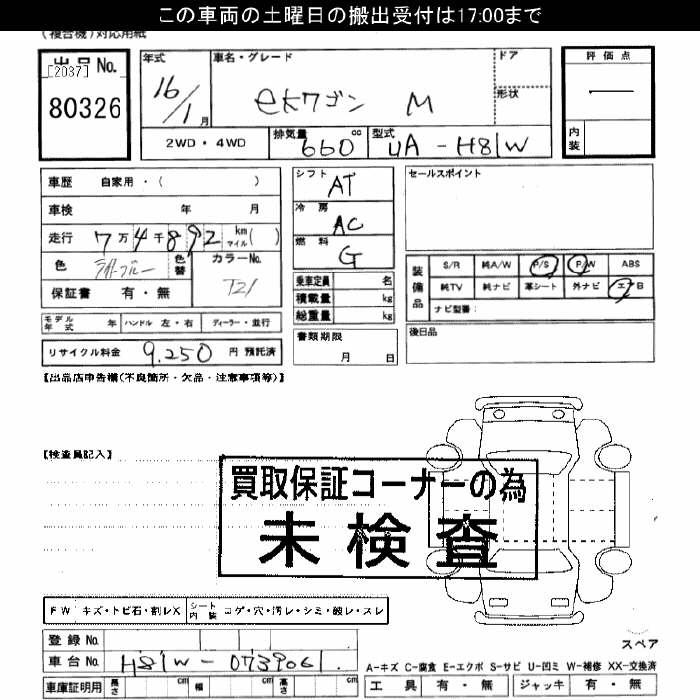 この車両の土曜日の搬出受付は17:00まで
(複合機)対応用紙
出品No.
[2037]
80326
年式
16/1月
車名・グレード
ekワゴン M
ドア
形状
評価点
内装
2WD・4WD
排気量 660 cc
型式 UA-H81W
車歴 自家用・( )
車検 年 月
走行 7万4千892 km マイル( )
色 ライトブルー
色替
カラーNo.
T21
保証書 有・無
シフト AT
冷房 AC
燃料 G
乗車定員 名
積載量 kg
総重量 kg
セールスポイント
装備品
S/R 純A/W P/S P/W ABS
純TV 純ナビ 革シート 外ナビ エアB
ナビ型番:
モデル年式 年 ハンドル 左・右 ディーラー・並行
書類期限
月 日
後日品
リサイクル料金 9,250 円 預託済
【出品店申告欄(不良箇所・欠品・注意事項等)】
【検査員記入】
買取保証コーナーの為
未検査
FW キズ・トビ石・割レX
シート内装 コゲ・穴・汚レ・シミ・破レ・スレ
登録No.
スペア
車台No. H81W-0739061
A-キズ C-腐食 E-エクボ S-サビ U-凹ミ W-補修 XX-交換済
車庫証明用 長さ cm 幅 cm 高さ cm
工具 有・無 ジャッキ 有・無